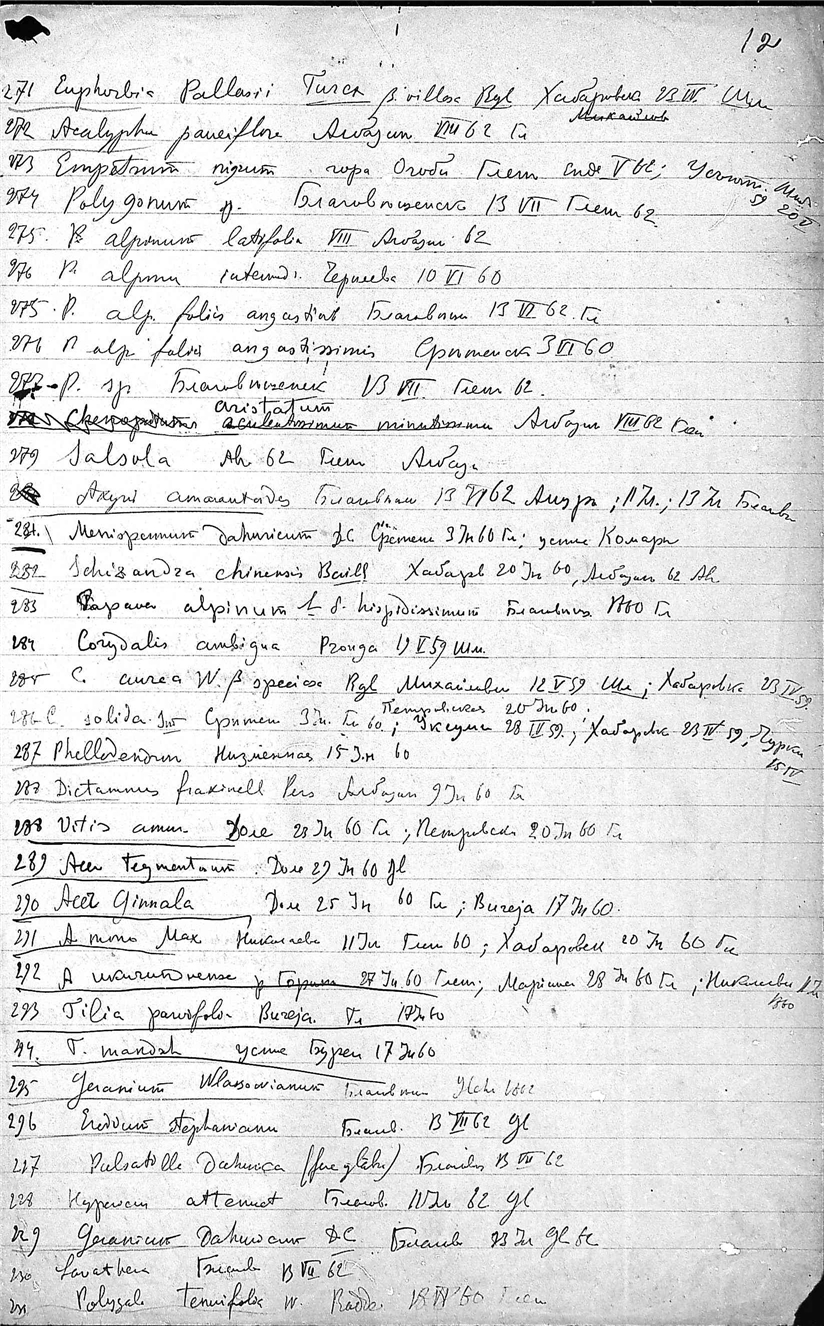 12
271 Euphorbia Pallasii Turcz β. villosa Rgl Хабаровка 23 IV Шм
Михайлов
272 Acalypha pauciflora Албазин VIII 62 Гл
273 Empetrum nigrum гора Огоби Глен V 62; 59 20 V
274 Polygonum sp. Благовещенск 13 VII Глен 62
275. P. alpinum latifolia VIII Албазин 62
276 P. alpinum intermed. Черняева 10 VI 60
275. P. alp. foliis angustiat Благовещ 13 VI 62. Гл
276 P alp foliis angustissimis Сретенск 3 VI 60
277 P. sp Благовещенск 13 VII Глен 62.
aristatum
Chenopodium minutissimum Албазин VIII 62 Глен
279 Salsola Ah 62 Глен Албаз
Axyris amarantoides Благовещ 13 VI 62 Амур; 11 Jл.; 13 Jл Благов
281. Menispermum dahuricum DC Сретен 3 Jн 60 Гл; устье Комары
282 Schizandra chinensis Baill Хабаров 20 Jн 60, Албазин 62 Ah
283 Papaver alpinum L δ. hispidissimum Благовещ 1860 Гл
284 Corydalis ambigua 19 V 59 Шм.
285 C. aurea W. β speciosa Rgl Михайлови 12 V 59 Шм; Хабаровка 23 IV 59.
Петровская 20 Jн 60.
286 C. solida Sm Сретен 3 Jн. Гл 60; 28 IV 59.; Хабаровка 23 IV 59,
15 IV
287 Phellodendron Низменная 15 Jн 60
288 Dictamnus fraxinell Pers Албазин 9 Jн 60 Гл
288 Vitis amur. Доле 23 Jн 60 Гл; Петровск 20 Jн 60 Гл
289 Acer tegmentosum. Доле 29 Jн 60 Gl
290 Acer Ginnala Доле 25 Jн 60 Гл; Bureja 17 Jн 60.
291 A mono Max Николаевс 11 Jл Глен 60; Хабаровск 20 Jн 60 Гл
292 A ukurunduense р Горин 27 Jн. 60 Глен; Мариинс 28 Jн 60 Гл; Николаевс 11 Jл
1860
293 Tilia parvifolia Bureja. Гл 17 Jн 60
294. T. mandsh устье Буреи 17 Jн 60
295 Geranium Wlassowianum Благовещ Glehn 1862
296 Erodium stephanianum Благов. 13 VII 62 Gl
227 Pulsatilla Dahurica Благов 13 VII 62
228 Hypericum attenuat Благов. 11 Jл 62 Gl
229 Geranium Dahuricum DC Благов 13 Jл Gl 62
230 Lavathera Благов 13 VII 62
231 Polygala tenuifolia W. Радде 18 IV 60 Глен